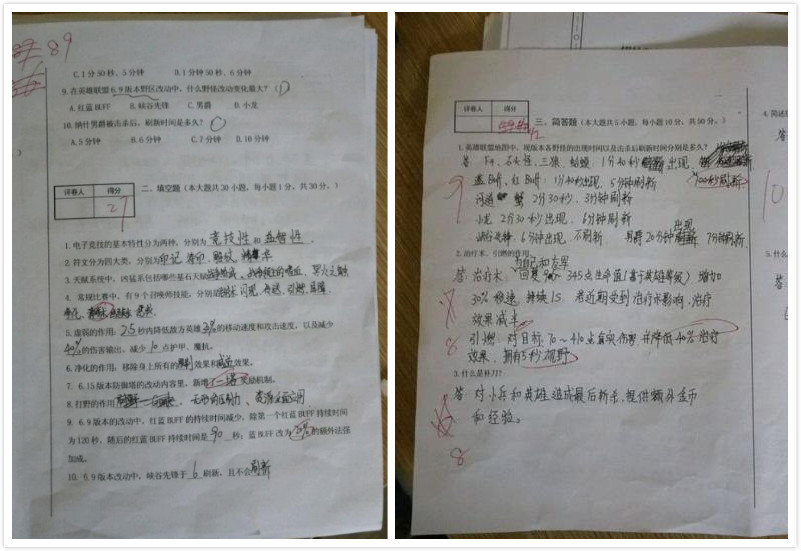 89
C.1分50秒、5分钟 D.1分50秒、6分钟
9. 在英雄联盟6.9版本野区改动中，什么野怪改动变化最大？（D
A.红蓝BUFF B.峡谷先锋 C.男爵 D.小龙
10. 纳什男爵被击杀后，刷新时间是多久？ C
A.5分钟 B.6分钟 C.7分钟 D.10分钟
评卷人 得分
27
二、填空题（本大题共30小题，每小题1分，共30分。）
1. 电子竞技的基本特性分为两种，分别为 竞技性 和 益智性 .
2. 符文分为四大类，分别为印记
3. 天赋系统中，凶猛系包括哪些基石天赋
4. 常规比赛中，有9个召唤师技能，分别是 闪现
5. 虚弱的作用：2.5秒内降低敌方英雄 的移动速度和攻击速度，以及减少
40%的伤害输出，减少10点护甲、魔抗。
6. 净化的作用，移除身上所有的 效果和 效果。
7. 6.15版本防御塔的改动内容里，新增 一塔 奖励机制。
8. 打野的作用
9. 6.9版本的改动中，红蓝BUFF的持续时间减少，除第一个红蓝BUFF持续时间
为120秒，随后的红蓝BUFF持续时间是90秒；蓝BUFF改为 的额外法强
加成。
10. 6.9版本的改动中，峡谷先锋于 6 刷新，且不会刷新
评卷人 得分
42
三、简答题（本大题共5小题，每小题10分，共50分。）
1. 英雄联盟地图中，现版本各野怪的出现时间以及击杀后刷新时间分别是多久？
答：F4、石头怪、三狼、蛤蟆：1分40秒 出现、 100秒刷新
蓝Buff、红Buff：1分40秒出现、5分钟刷新
河道 蟹 2分30秒、3分钟刷新
小龙 2分30秒出现、6分钟刷新
峡谷先锋：6分钟出现、不刷新 男爵20分钟 出现 7分钟刷新
9
2. 治疗术、引燃的作用。
答：治疗术：为自己和友军回复90~345点生命值（基于英雄等级）增加
30%移速，持续1S. 若近期受到治疗术影响，治疗
效果减半
引燃：对目标70~410点真实伤害并降低40%治疗
效果、拥有5秒视野
8
3. 什么是补刀？
答：对小兵和英雄造成最后斩杀，提供额外金币
和经验。
8
4. 简述
答
10
5. 什么
答